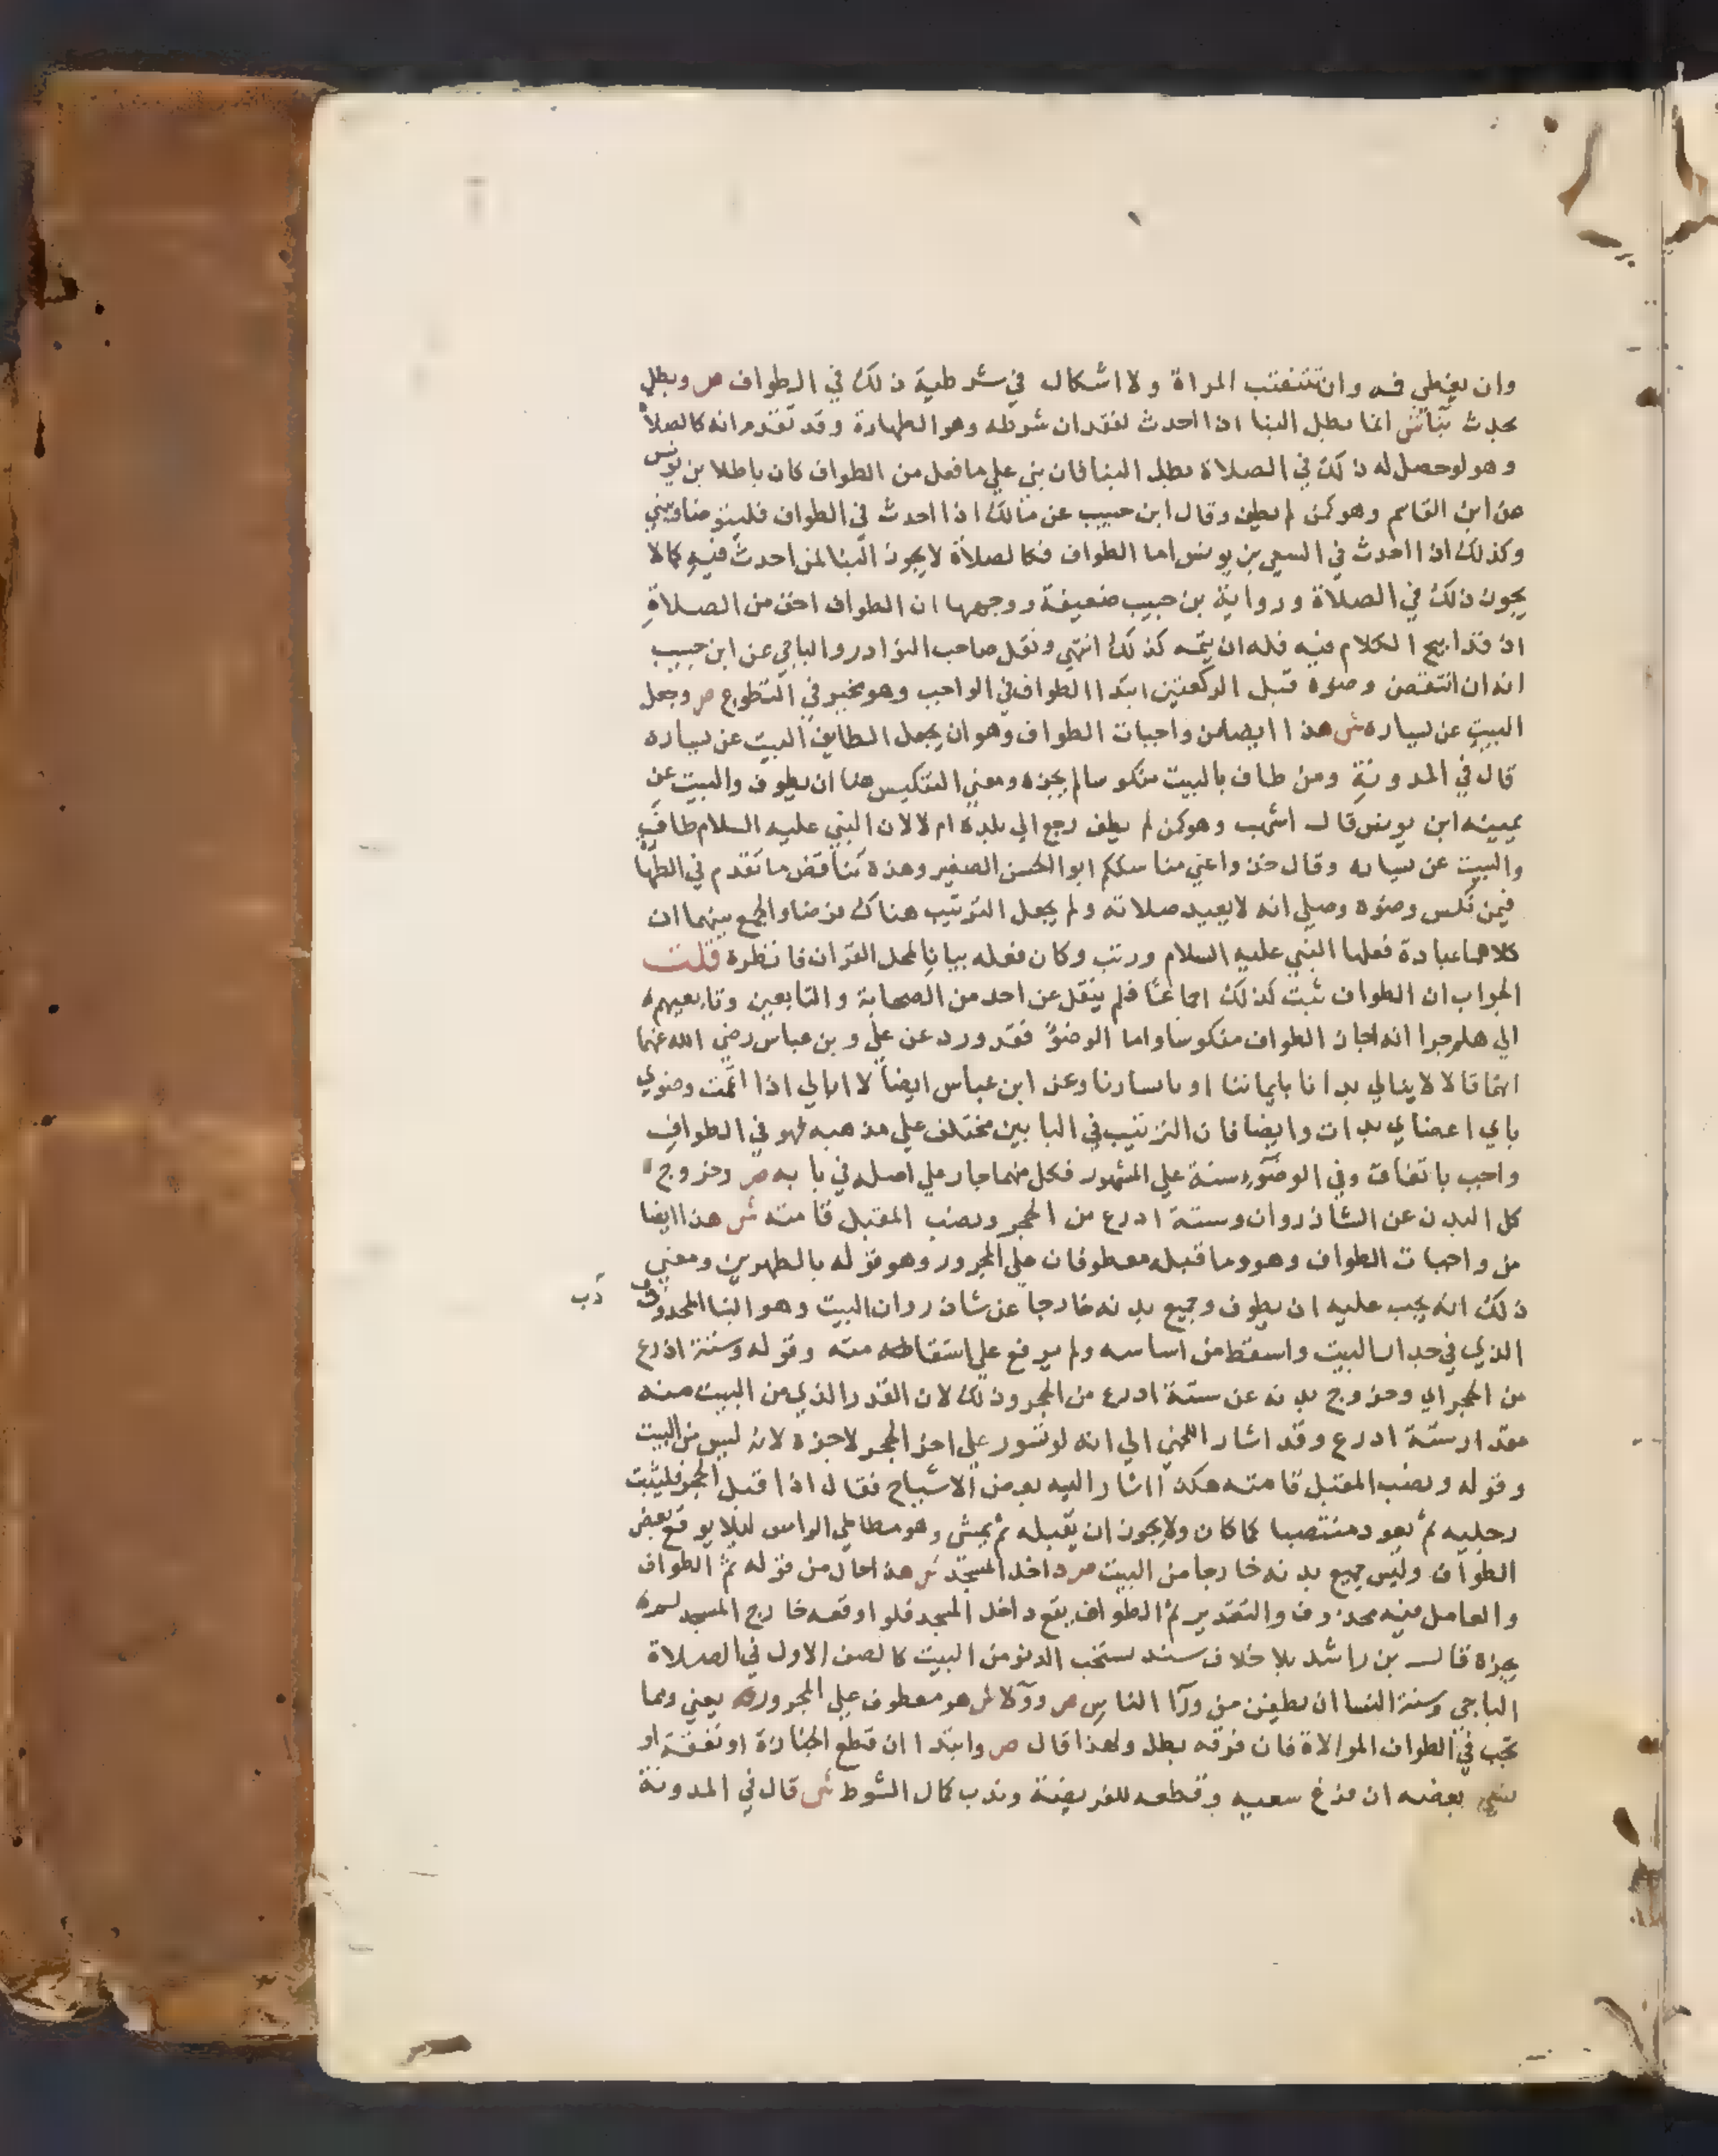 وان يغطي فيه وان تنتقب المراة ولا اشكال في شرطية ذلك في الطواف ص وبطل
بحدث بنا ش انما يبطل البنا اذا احدث لفقدان شرطه وهو الطهارة وقد تقدم انه كالصلاة
وهو لو حصل له ذلك في الصلاة بطل البنا فان بني علي ما فعل من الطواف كان باطلا بن يونس
عن ابن القاسم وهو كمن لم يطف وقال ابن حبيب عن مالك اذا احدث في الطواف فليتوضا ويبني
وكذلك اذا احدث في السعي بن يونس اما الطواف فكالصلاة لا يجوز البنا لمن احدث فيه كما لا
يجوز ذلك في الصلاة ورواية بن حبيب ضعيفة ووجهها ان الطواف اخف من الصلاة
اذ قد ابيح الكلام فيه فله ان يتمه كذلك انتهي ونقل صاحب النوادر والباجي عن ابن حبيب
انه ان انتقض وضوه قبل الركعتين ابتدا الطواف في الواجب وهو مخير في التطوع ص وجعل
البيت عن يساره ش هذا ايضا من واجبات الطواف وهو ان يجعل الطايف البيت عن يساره
قال في المدونة ومن طاف بالبيت منكوسا لم يجزه ومعني التنكيس هنا ان يطوف والبيت عن
يمينه ابن يونس قال اشهب وهو كمن لم يطف رجع الي بلده ام لا لان النبي عليه السلام طاف
والبيت عن يساره وقال خذوا عني مناسككم ابو الحسن الصغير وهذه تناقض ما تقدم في الطها
فيمن نكس وضوه وصلي انه لا يعيد صلاته ولم يجعل الترتيب هناك فرضا والجمع بينهما ان
كلاهما عبادة فعلها النبي عليه السلام ورتب وكان فعله بيانا لمحل القران فانظره قلت
الجواب ان الطواف ثبت كذلك اجماعا فلم ينقل عن احد من الصحابة والتابعين وتابعيهم
الي هلم جرا انه اجاز الطواف منكوسا واما الوضو فقد ورد عن علي وبن عباس رضي الله عنهما
انهما قالا لا يبالي بدانا بايماننا او بايسارنا وعن ابن عباس ايضا لا ابالي اذا اتممت وضوي
باي اعضاي بدات وايضا فان الترتيب في البابين مختلف علي مذهبه فهو في الطواف
واجب باتفاق وفي الوضوء سنة علي المشهور فكل منهما جار علي اصله في بابه ص وخروج
كل البدن عن الشاذروان وستة اذرع من الحجر ونصب المقبل قامته ش هذا ايضا
من واجبات الطواف وهو وما قبله معطوفان علي المجرور وهو قوله بالطهرين ومعني
ذلك انه يجب عليه ان يطوف وجميع بدنه خارجا عن شاذروان البيت وهو البنا المحدودب
الذي في جدار البيت واسقط من اساسه ولم يرفع علي استقامته وقوله وستة اذرع
من الحجر اي وخروج بدنه عن ستة اذرع من الحجر وذلك لان القدر الذي من البيت منه
مقدار ستة اذرع وقد اشار اللخمي الي انه لو تسور علي اخر الحجر لاجزه لانه ليس من البيت
وقوله ونصب المقبل قامته هكذا اشار اليه بعض الاشياخ فقال اذا قبل الحجر فليثبت
رجليه ثم يعود منتصبا كما كان ولا يجوز ان يقبله ثم يمشي وهو مطاطي الراس ليلا يوقع بعض
الطواف وليس جميع بدنه خارجا من البيت ص داخل المسجد ش هذا حال من قوله ثم الطواف
والعامل فيه محذوف والتقدير ثم الطواف يقع داخل المسجد فلو اوقعه خارج المسجد لم
يجزه قال بن راشد بلا خلاف سند يستحب الدنو من البيت كالصف الاول في الصلاة
الباجي وسنة النسا ان يطفن من ورا الناس ص وولا ش هو معطوف علي المجرور يعني ومما
يجب في الطواف الموالاة فان فرقه بطل ولهذا قال ص وابتدا ان قطع الجنازة او نفقة او
نسي بعضه ان فرغ سعيه وقطعه للفريضة وندب كمال الشوط ش قال في المدونة